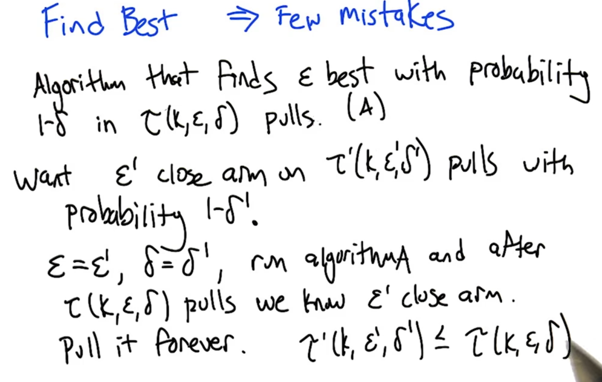 Find Best ⇒ Few mistakes
Algorithm that finds ε best with probability
1-δ in τ(k,ε,δ) pulls. (A)
Want ε' close arm on τ'(k,ε',δ') pulls with
probability 1-δ'.
ε=ε', δ=δ', run algorithm A and after
τ(k,ε,δ) pulls we know ε' close arm.
Pull it forever. τ'(k,ε',δ') ≤ τ(k,ε,δ)